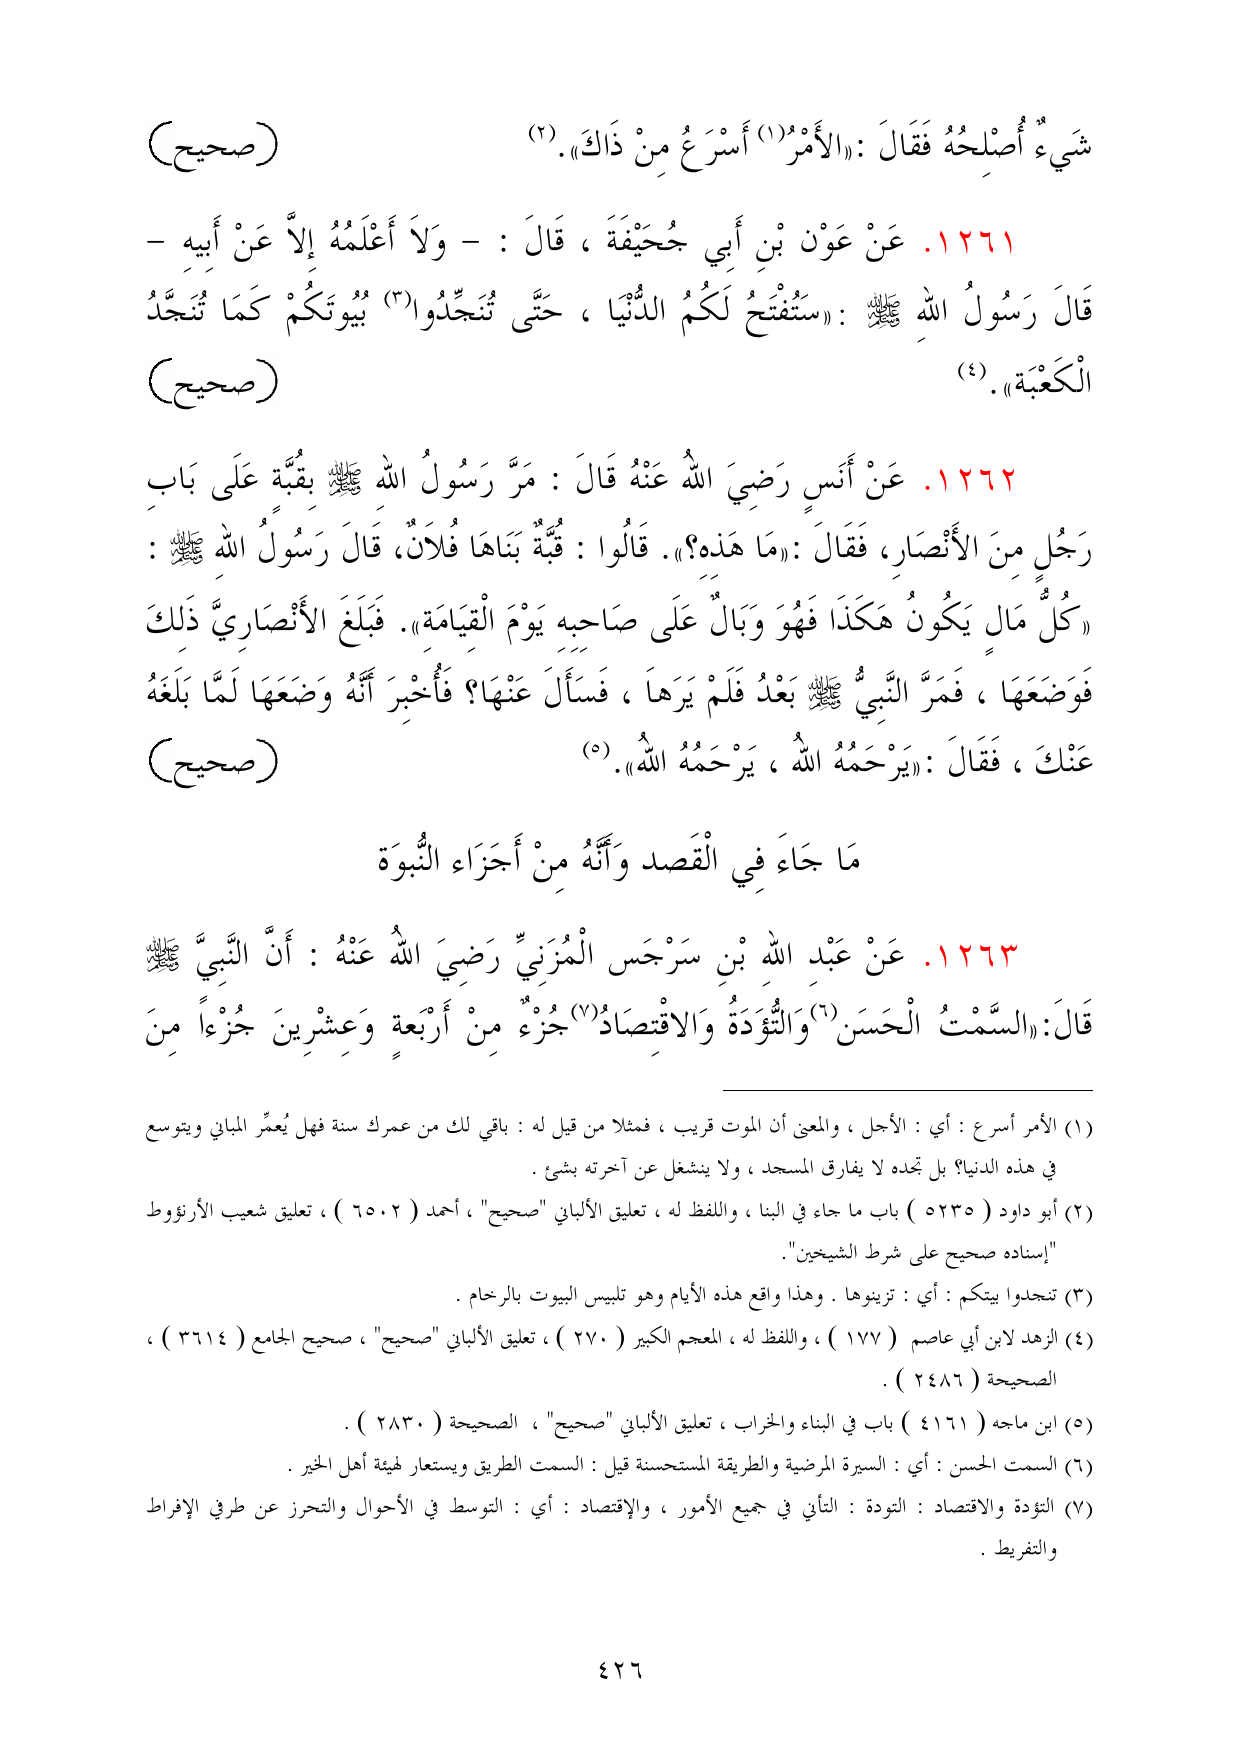 شَيءٌ أُصْلِحُهُ فَقَالَ :«الأَمْرُ(١) أَسْرَعُ مِنْ ذَاكَ».(٢) (صحيح)
١٢٦١. عَنْ عَوْن بْنِ أَبِي جُحَيْفَةَ ، قَالَ : – وَلاَ أَعْلَمُهُ إِلاَّ عَنْ أَبِيهِ –
قَالَ رَسُولُ اللهِ ﷺ :«سَتُفْتَحُ لَكُمُ الدُّنْيَا ، حَتَّى تُنَجِّدُوا(٣) بُيُوتَكُمْ كَمَا تُنَجَّدُ
الْكَعْبَة».(٤) (صحيح)
١٢٦٢. عَنْ أَنَسٍ رَضِيَ اللهُ عَنْهُ قَالَ : مَرَّ رَسُولُ اللهِ ﷺ بِقُبَّةٍ عَلَى بَابِ
رَجُلٍ مِنَ الأَنْصَارِ، فَقَالَ :«مَا هَذِهِ؟». قَالُوا : قُبَّةٌ بَنَاهَا فُلاَنٌ، قَالَ رَسُولُ اللهِ ﷺ :
«كُلُّ مَالٍ يَكُونُ هَكَذَا فَهُوَ وَبَالٌ عَلَى صَاحِبِهِ يَوْمَ الْقِيَامَةِ». فَبَلَغَ الأَنْصَارِيَّ ذَلِكَ
فَوَضَعَهَا ، فَمَرَّ النَّبِيُّ ﷺ بَعْدُ فَلَمْ يَرَهاَ ، فَسَأَلَ عَنْهَا؟ فَأُخْبِرَ أَنَّهُ وَضَعَهَا لَمَّا بَلَغَهُ
عَنْكَ ، فَقَالَ :«يَرْحَمُهُ اللهُ ، يَرْحَمُهُ اللهُ».(٥) (صحيح)
مَا جَاءَ فِي الْقَصد وَأَنَّهُ مِنْ أَجَزَاء النُّبوَة
١٢٦٣. عَنْ عَبْدِ اللهِ بْنِ سَرْجَس الْمُزَنِيِّ رَضِيَ اللهُ عَنْهُ : أَنَّ النَّبِيَّ ﷺ
قَالَ:«السَّمْتُ الْحَسَن(٦)وَالتُّؤَدَةُ وَالاقْتِصَادُ(٧)جُزْءٌ مِنْ أَرْبَعةٍ وَعِشْرِينَ جُزْءاً مِنَ
(١) الأمر أسرع : أي : الأجل ، والمعنى أن الموت قريب ، فمثلا من قيل له : باقي لك من عمرك سنة فهل يُعمِّر المباني ويتوسع
في هذه الدنيا؟ بل تجده لا يفارق المسجد ، ولا ينشغل عن آخرته بشئ .
(٢) أبو داود ( ٥٢٣٥ ) باب ما جاء في البنا ، واللفظ له ، تعليق الألباني "صحيح" ، أحمد ( ٦٥٠٢ ) ، تعليق شعيب الأرنؤوط
"إسناده صحيح على شرط الشيخين".
(٣) تنجدوا بيتكم : أي : تزينوها . وهذا واقع هذه الأيام وهو تلبيس البيوت بالرخام .
(٤) الزهد لابن أبي عاصم ( ١٧٧ ) ، واللفظ له ، المعجم الكبير ( ٢٧٠ ) ، تعليق الألباني "صحيح" ، صحيح الجامع ( ٣٦١٤ ) ،
الصحيحة ( ٢٤٨٦ ) .
(٥) ابن ماجه ( ٤١٦١ ) باب في البناء والخراب ، تعليق الألباني "صحيح" ، الصحيحة ( ٢٨٣٠ ) .
(٦) السمت الحسن : أي : السيرة المرضية والطريقة المستحسنة قيل : السمت الطريق ويستعار لهيئة أهل الخير .
(٧) التؤدة والاقتصاد : التودة : التأني في جميع الأمور ، والإقتصاد : أي : التوسط في الأحوال والتحرز عن طرفي الإفراط
والتفريط .
٤٢٦